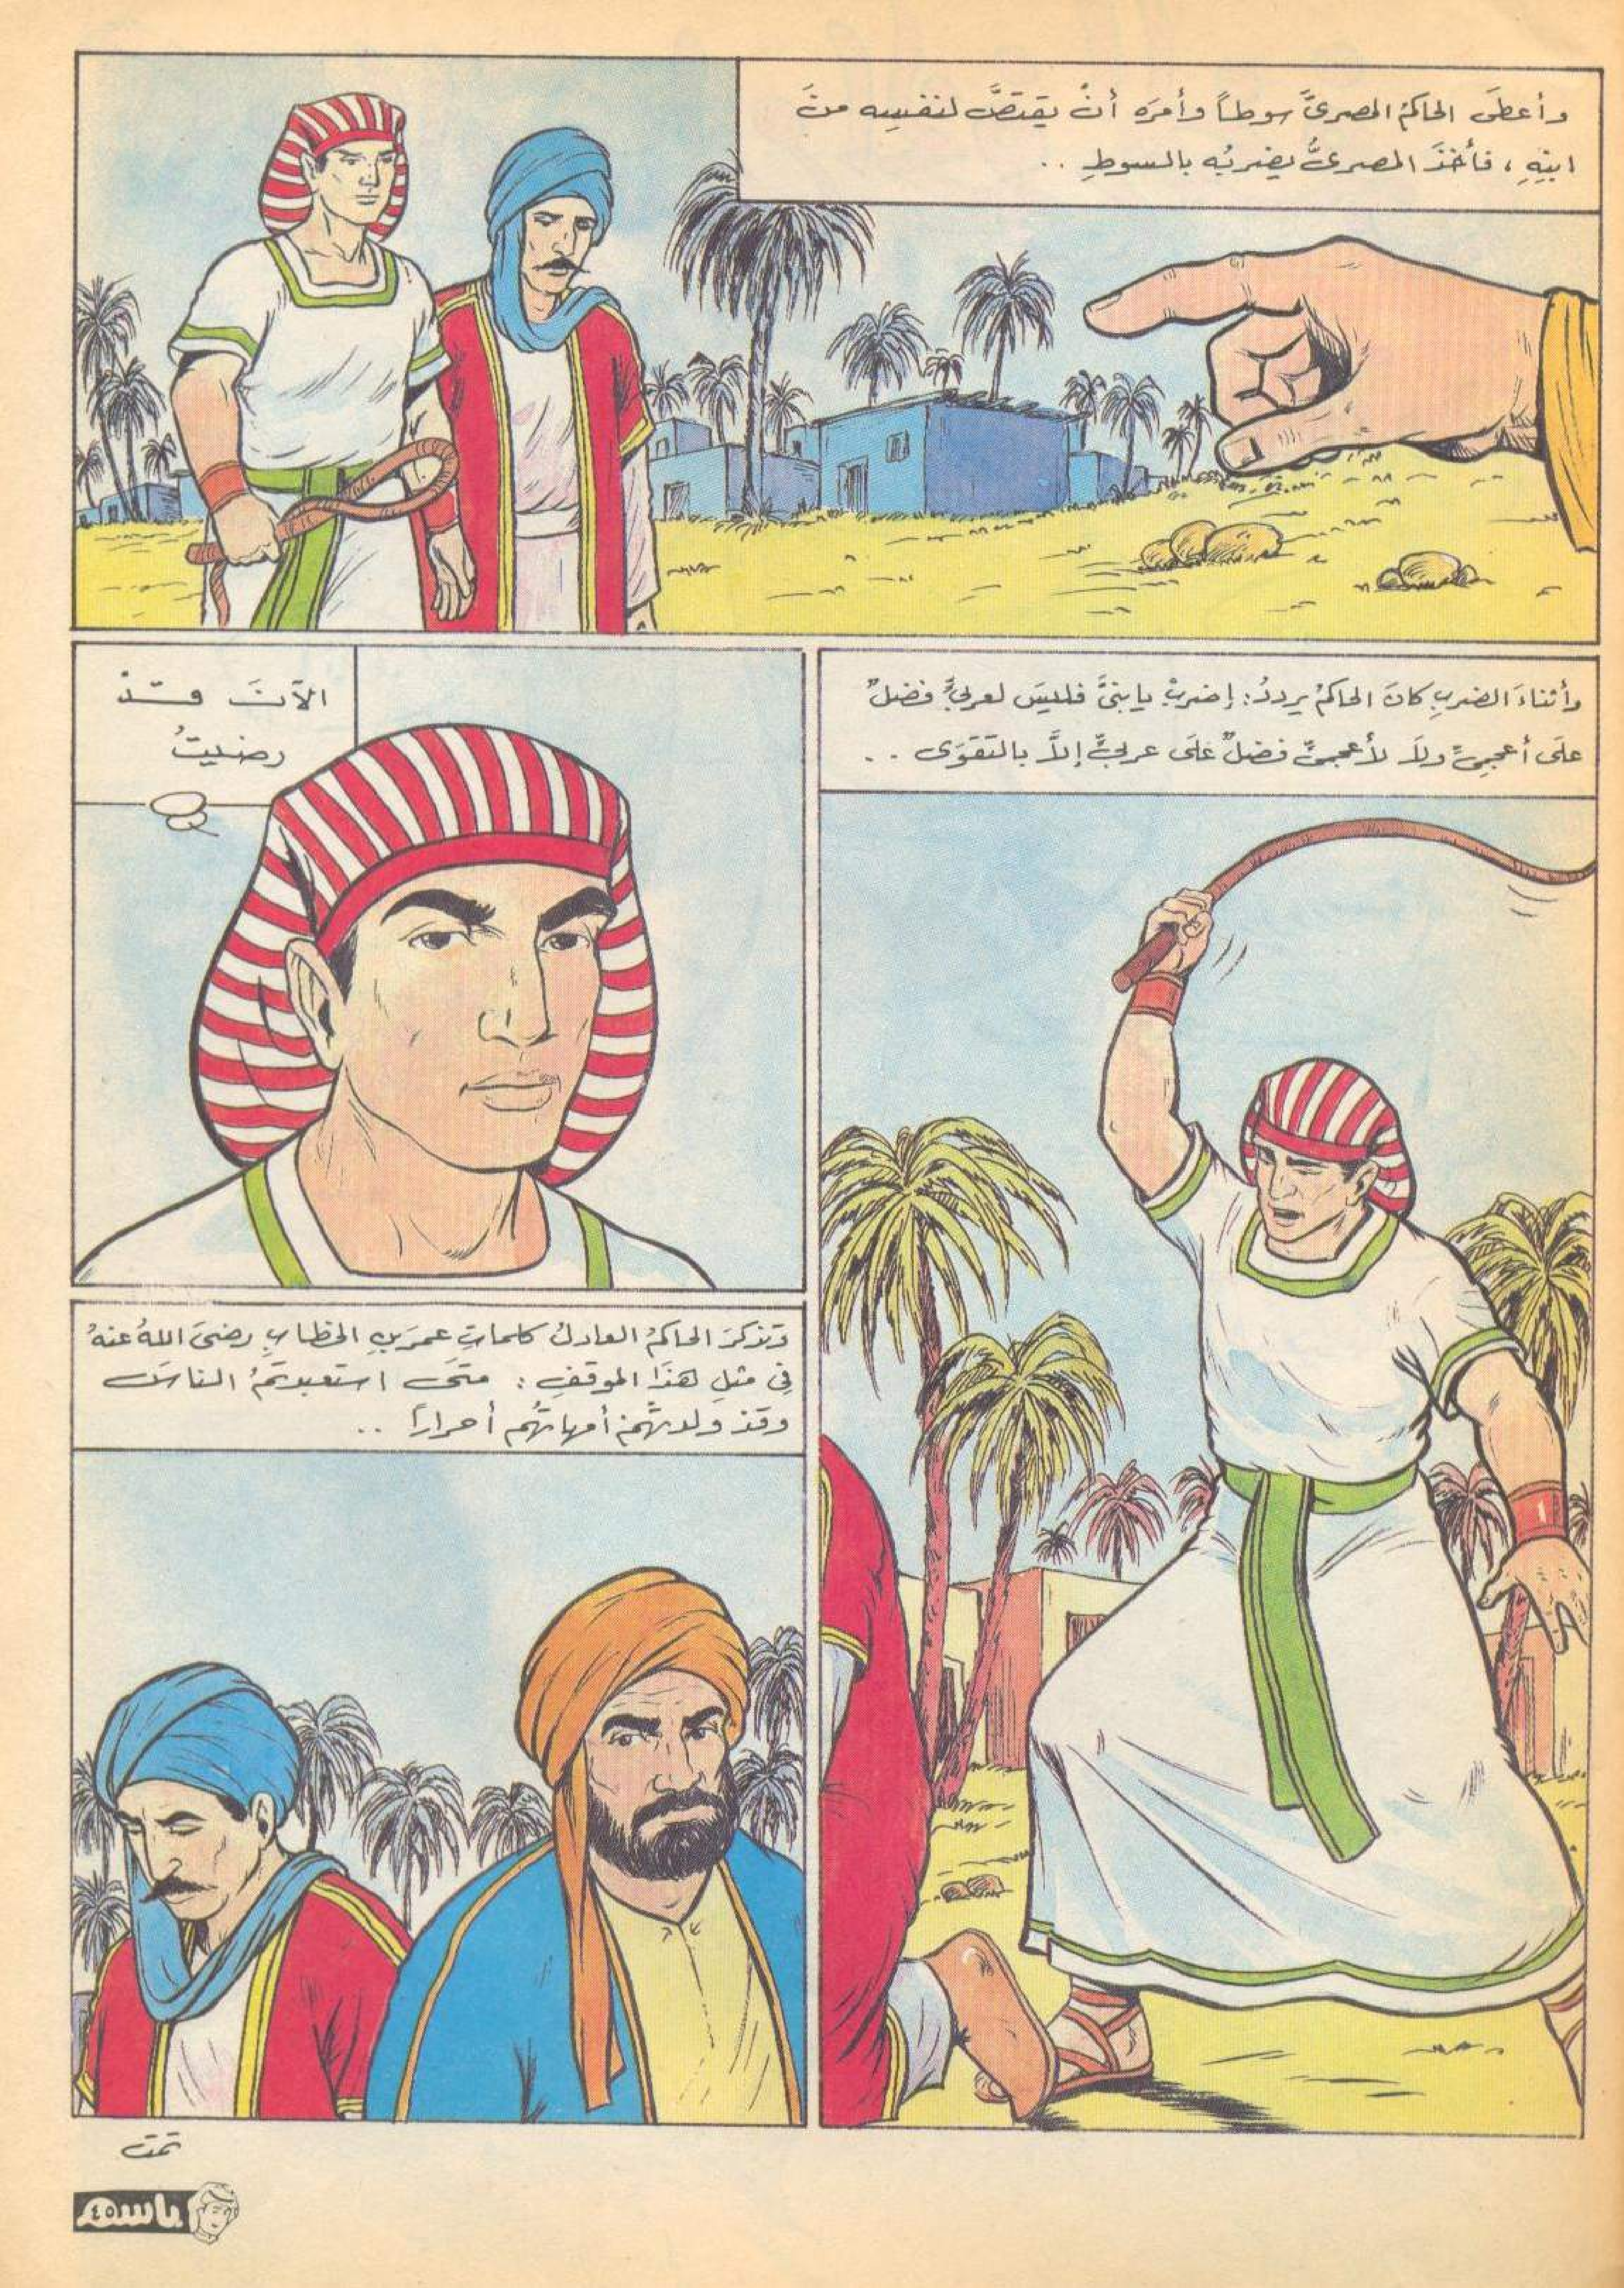 وأعطَى الحاكمُ المصرىَّ سوطاً وأمرَه أنْ يقتصَّ لنفسِه منَ
ابنِهِ ، فأخذَ المصرىُّ يضربُه بالسوطِ ..
وأثناءَ الضربِ كانَ الحاكمُ يرددُ: إضربْ يابنىَّ فليسَ لعربىٍّ فضلٌ
علَى أعجمىٍّ ولاَ لأعجمىٍّ فضلٌ علَى عربىٍّ إلاَّ بالتقوَى ..
الآنَ قَدْ
رضيتُ
وتذكرَ الحاكمُ العادلُ كلماتِ عمرَبنِ الخطابِ رضىَ اللهُ عنهُ
فِى مثلِ هذَا الموقفِ : متَى استعبدتمُ الناسَ
وقدْ ولدتْهُمْ أمهاتُهُم أحراراً ..
تمت
باسم
٤٥